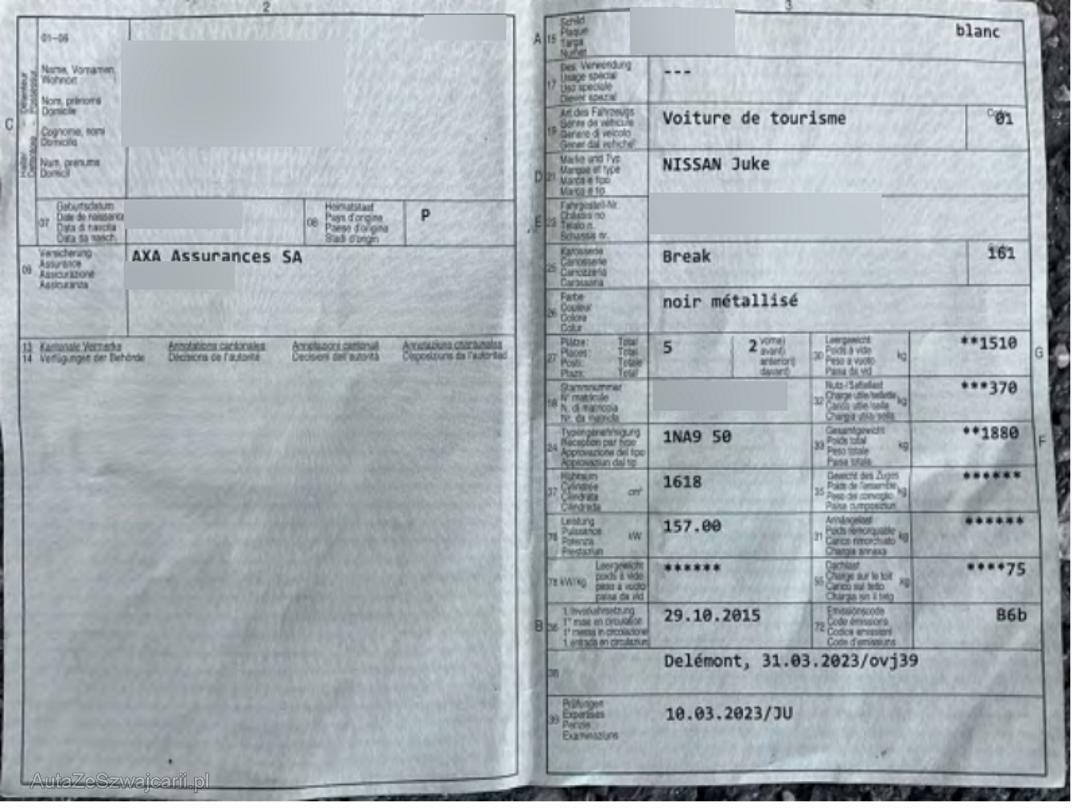 2
01-06
Halter
Détenteur
Name, Vornamen
Wohnort
Nom, prénoms
Domicile
Cognome, nomi
Domicilio
Num, prenums
Domicil
C
07
Geburtsdatum
Date de naissance
Data di nascita
Data da nasch.
08
Heimatstaat
Pays d'origine
Paese d'origine
Stadi d'origin
P
09
Versicherung
Assurance
Assicurazione
Assicuranza
AXA Assurances SA
13 Kantonale Vermerke
14 Verfügungen der Behörde
Annotations cantonales
Décisions de l'autorité
Annotazioni cantonali
Decisioni dell'autorità
Annotaziuns chantunalas
Disposiziuns da l'autoritad
3
A 15
Schild
Plaque
Targa
Numer
blanc
17
Bes. Verwendung
Usage spécial
Uso speciale
Diever spezial
---
19
Art des Fahrzeugs
Genre de véhicule
Genere di veicolo
Gener dal vehichel
Voiture de tourisme
Code
01
D 21
Marke und Typ
Marque et type
Marca e tipo
Marca e tip
NISSAN Juke
E 23
Fahrgestell-Nr.
Châssis no
Telaio n.
Schassis nr.
25
Karosserie
Carrosserie
Carrozzeria
Carossaria
Break
161
26
Farbe
Couleur
Colore
Colur
noir métallisé
27
Plätze: Total
Places: Total
Posti: Totale
Plazs: Total
5
2
vorne)
avant)
anteriori)
davant)
30
Leergewicht
Poids à vide
Peso a vuoto
Paisa da vid
kg
**1510
G
18
Stammnummer
N° matricule
N. di matricola
Nr. da matricla
32
Nutz-/Sattellast
Charge utile/sellette
Carico utile/sella
Chargia utila/sella
kg
***370
24
Typengenehmigung
Réception par type
Approvazione del tipo
Approvaziun dal tip
1NA9 50
33
Gesamtgewicht
Poids total
Peso totale
Paisa totala
kg
**1880
F
37
Hubraum
Cylindrée
Cilindrata
Cilindrada
cm³
1618
35
Gewicht des Zuges
Poids de l'ensemble
Peso del convoglio
Paisa cumposiziun
kg
******
76
Leistung
Puissance
Potenza
Prestaziun
kW
157.00
31
Anhängelast
Poids remorquable
Carico rimorchiato
Chargia annexa
kg
******
78 kW/kg
Leergewicht
poids à vide
peso a vuoto
paisa da vid
******
55
Dachlast
Charge sur le toit
Carico sul tetto
Chargia sin il tetg
kg
****75
B 36
1. Inverkehrsetzung
1re mise en circulation
1a messa in circolazione
1. entrada en circulaziun
29.10.2015
72
Emissionscode
Code émissions
Codice emissioni
Code d'emissiuns
B6b
38
Delémont, 31.03.2023/ovj39
39
Prüfungen
Expertises
Perizie
Examinaziuns
10.03.2023/JU
AutaZeSzwajcarii.pl